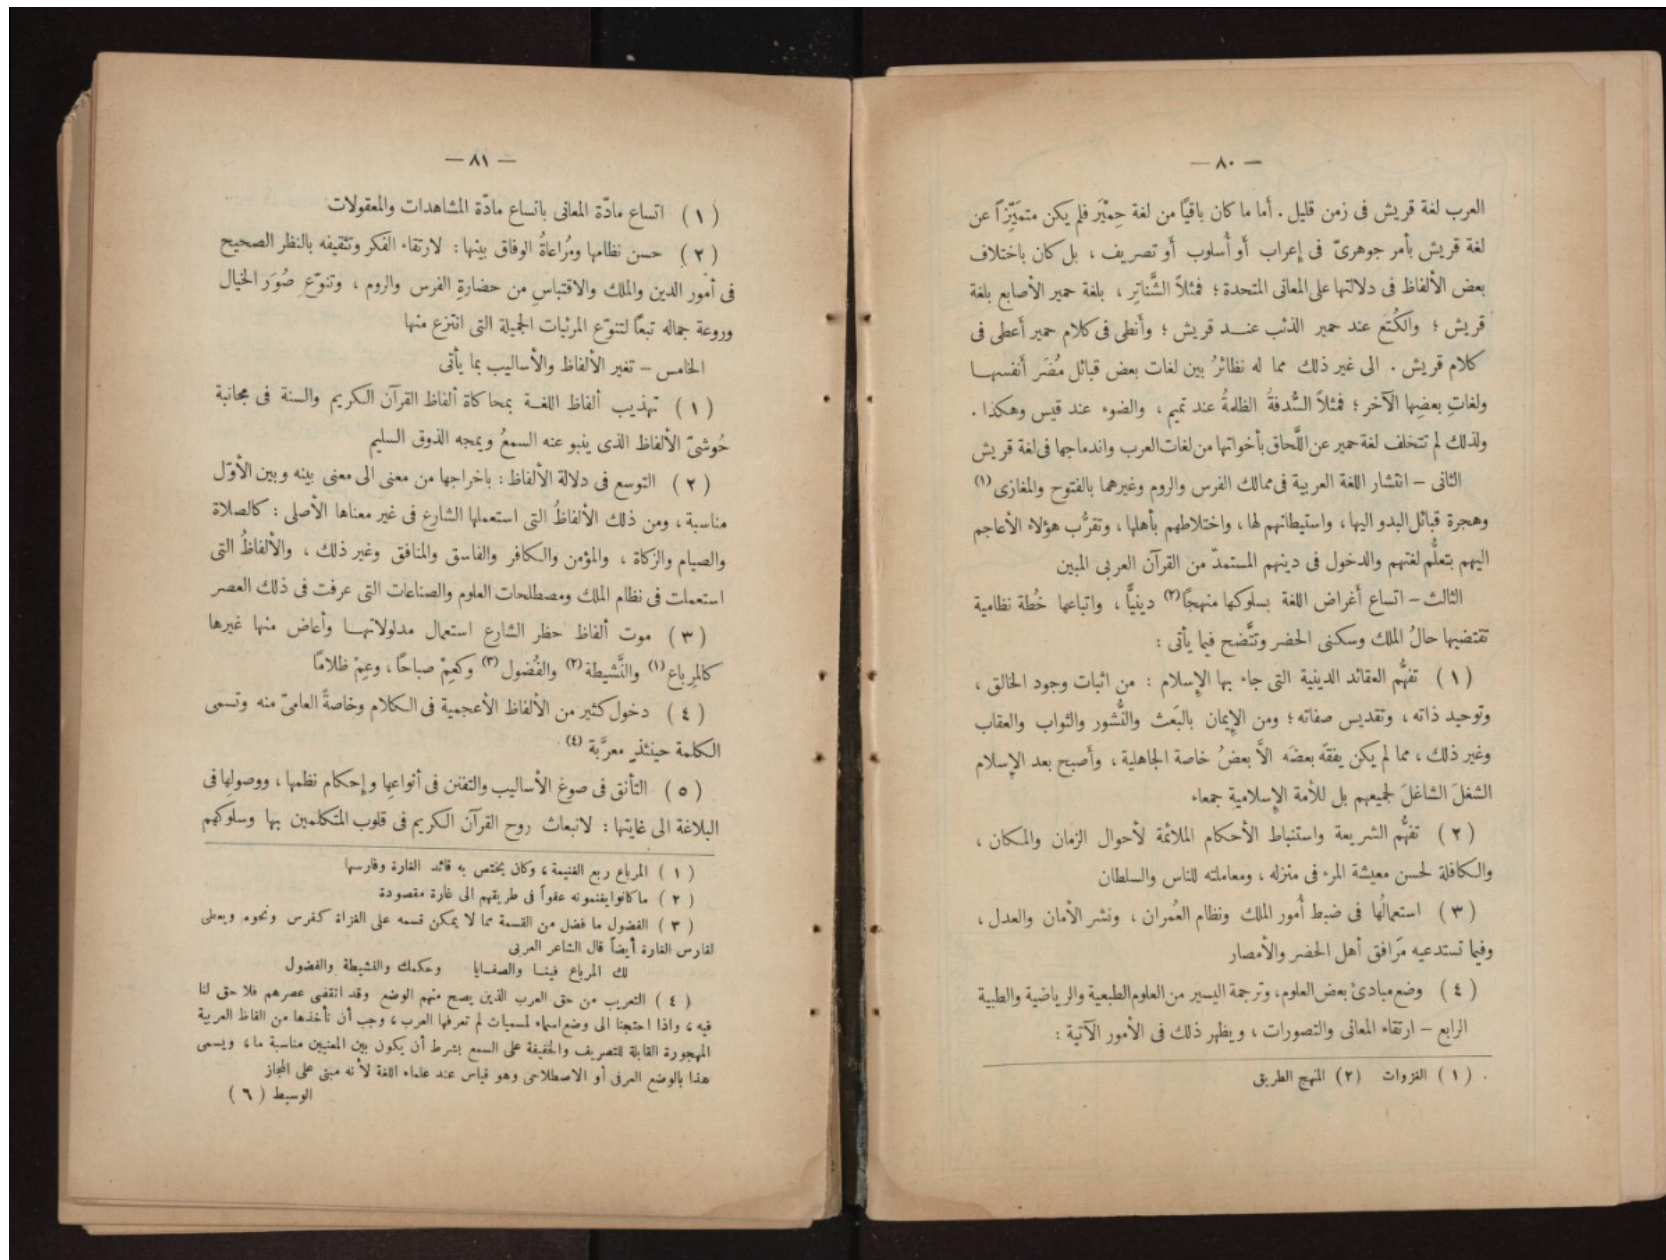 — ٨٠ —
العرب لغة قريش فى زمن قليل . أما ما كان باقيًا من لغة حِمْيَر فلم يكن متميّزًا عن
لغة قريش بأمر جوهرىّ فى إعراب أو أسلوب أو تصريف ، بل كان باختلاف
بعض الألفاظ فى دلالتها على المعانى المتحدة ؛ فمثلاً الشَّناتِر ، بلغة حمير الأصابع بلغة
قريش ؛ والكُتَع عند حمير الذئب عند قريش ؛ وأنطى فى كلام حمير أعطى فى
كلام قريش . الى غير ذلك مما له نظائرُ بين لغات بعض قبائل مُضَر أنفسها
ولغاتِ بعضِها الآخر ؛ فمثلاً السُّدفةُ الظلمةُ عند تميم ، والضوء عند قيس وهكذا .
ولذلك لم تتخلف لغة حمير عن اللَّحاق بأخواتها من لغات العرب واندماجها فى لغة قريش
الثانى – انتشار اللغة العربية فى ممالك الفرس والروم وغيرهما بالفتوح والمغازى (١)
وهجرة قبائل البدو اليها ، واستيطانهم لها ، واختلاطهم بأهلها ، وتقرُّب هؤلاء الأعاجم
اليهم بتعلُّم لغتهم والدخول فى دينهم المستمدّ من القرآن العربى المبين
الثالث – اتساع أغراض اللغة بسلوكها منهجًا (٢) دينيًّا ، واتباعها خُطة نظامية
تقتضيها حالُ الملك وسكنى الحضر وتتَّضح فيما يأتى :
( ١ ) تفهُّم العقائد الدينية التى جاء بها الإسلام : من اثبات وجود الخالق ،
وتوحيد ذاته ، وتقديس صفاته ؛ ومن الإيمان بالبَعث والنُّشور والثواب والعقاب
وغير ذلك ، مما لم يكن يفقَه بعضَه الاَّ بعضُ خاصة الجاهلية ، وأصبح بعد الإسلام
الشغلَ الشاغلَ لجميعهم بل للأمة الإسلامية جمعاء
( ٢ ) تفهُّم الشريعة واستنباط الأحكام الملائمة لأحوال الزمان والمكان ،
والكافلة لحسن معيشة المرء فى منزله ، ومعاملته للناس والسلطان
( ٣ ) استعمالُها فى ضبط أمور الملك ونظام العُمران ، ونشر الأمان والعدل ،
وفيما تستدعيه مَرافق أهل الحضر والأمصار
( ٤ ) وضع مبادئ بعض العلوم ، وترجمة اليسير من العلوم الطبعية والرياضية والطبية
الرابع – ارتقاء المعانى والتصورات ، ويظهر ذلك فى الأمور الآتية :
( ١ ) الغزوات (٢) المنهج الطريق
— ٨١ —
( ١ ) اتساع مادّة المعانى باتساع مادّة المشاهدات والمعقولات
( ٢ ) حسن نظامها ومُراعاةُ الوفاق بينها : لارتقاء الفكر وتثقيفه بالنظر الصحيح
فى أمور الدين والملك والاقتباسِ من حضارةِ الفرس والروم ، وتنوّع صُوَر الخيال
وروعة جماله تبعًا لتنوّع المرئيات الجميلة التى انتزع منها
الخامس – تغير الألفاظ والأساليب بما يأتى
( ١ ) تهذيب ألفاظ اللغة بمحاكاة ألفاظ القرآن الكريم والسنة فى مجانبة
حُوشىّ الألفاظ الذى ينبو عنه السمعُ ويمجه الذوق السليم
( ٢ ) التوسع فى دلالة الألفاظ : باخراجها من معنى الى معنى بينه وبين الأوّل
مناسبة ، ومن ذلك الألفاظُ التى استعملها الشارع فى غير معناها الأصلى : كالصلاة
والصيام والزكاة ، والمؤمن والكافر والفاسق والمنافق وغير ذلك ، والألفاظُ التى
استعملت فى نظام الملك ومصطلحات العلوم والصناعات التى عرفت فى ذلك العصر
( ٣ ) موت ألفاظ حظر الشارع استعمال مدلولاتها وأعاض منها غيرها
كالمِرباع (١) والنَّشيطة (٢) والفُضول (٣) وكعِمْ صباحًا ، وعِمْ ظلامًا
( ٤ ) دخول كثير من الألفاظ الأعجمية فى الكلام وخاصةً العامىّ منه وتسمى
الكلمة حينئذٍ معرَّبة (٤)
( ٥ ) التأنق فى صوغ الأساليب والتفنن فى أنواعها وإحكام نظمها ، ووصولها فى
البلاغة الى غايتها : لانبعاث روح القرآن الكريم فى قلوب المتكلمين بها وسلوكهم
( ١ ) المرباع ربع الغنيمة ، وكان يختص به قائد الغارة وفارسها
( ٢ ) ما كانوا يغنمونه عفواً فى طريقهم الى غارة مقصودة
( ٣ ) الفضول ما فضل من القسمة مما لا يمكن قسمه على الغزاة كفرس ونحوه ويعطى
لفارس الغارة أيضاً قال الشاعر العربى
لك المرباع فينا والصفايا وحكمك والنشيطة والفضول
( ٤ ) التعريب من حق العرب الذين يصح منهم الوضع وقد انقضى عصرهم فلا حق لنا
فيه ، واذا احتجنا الى وضع اسماء لمسميات لم تعرفها العرب ، وجب أن نأخذها من الفاظ العربية
المهجورة القابلة للتصريف والخفيفة على السمع بشرط أن يكون بين المعنيين مناسبة ما ، ويسمى
هذا بالوضع العرفى أو الاصطلاحى وهو قياس عند علماء اللغة لأنه مبنى على المجاز
الوسيط ( ٦ )